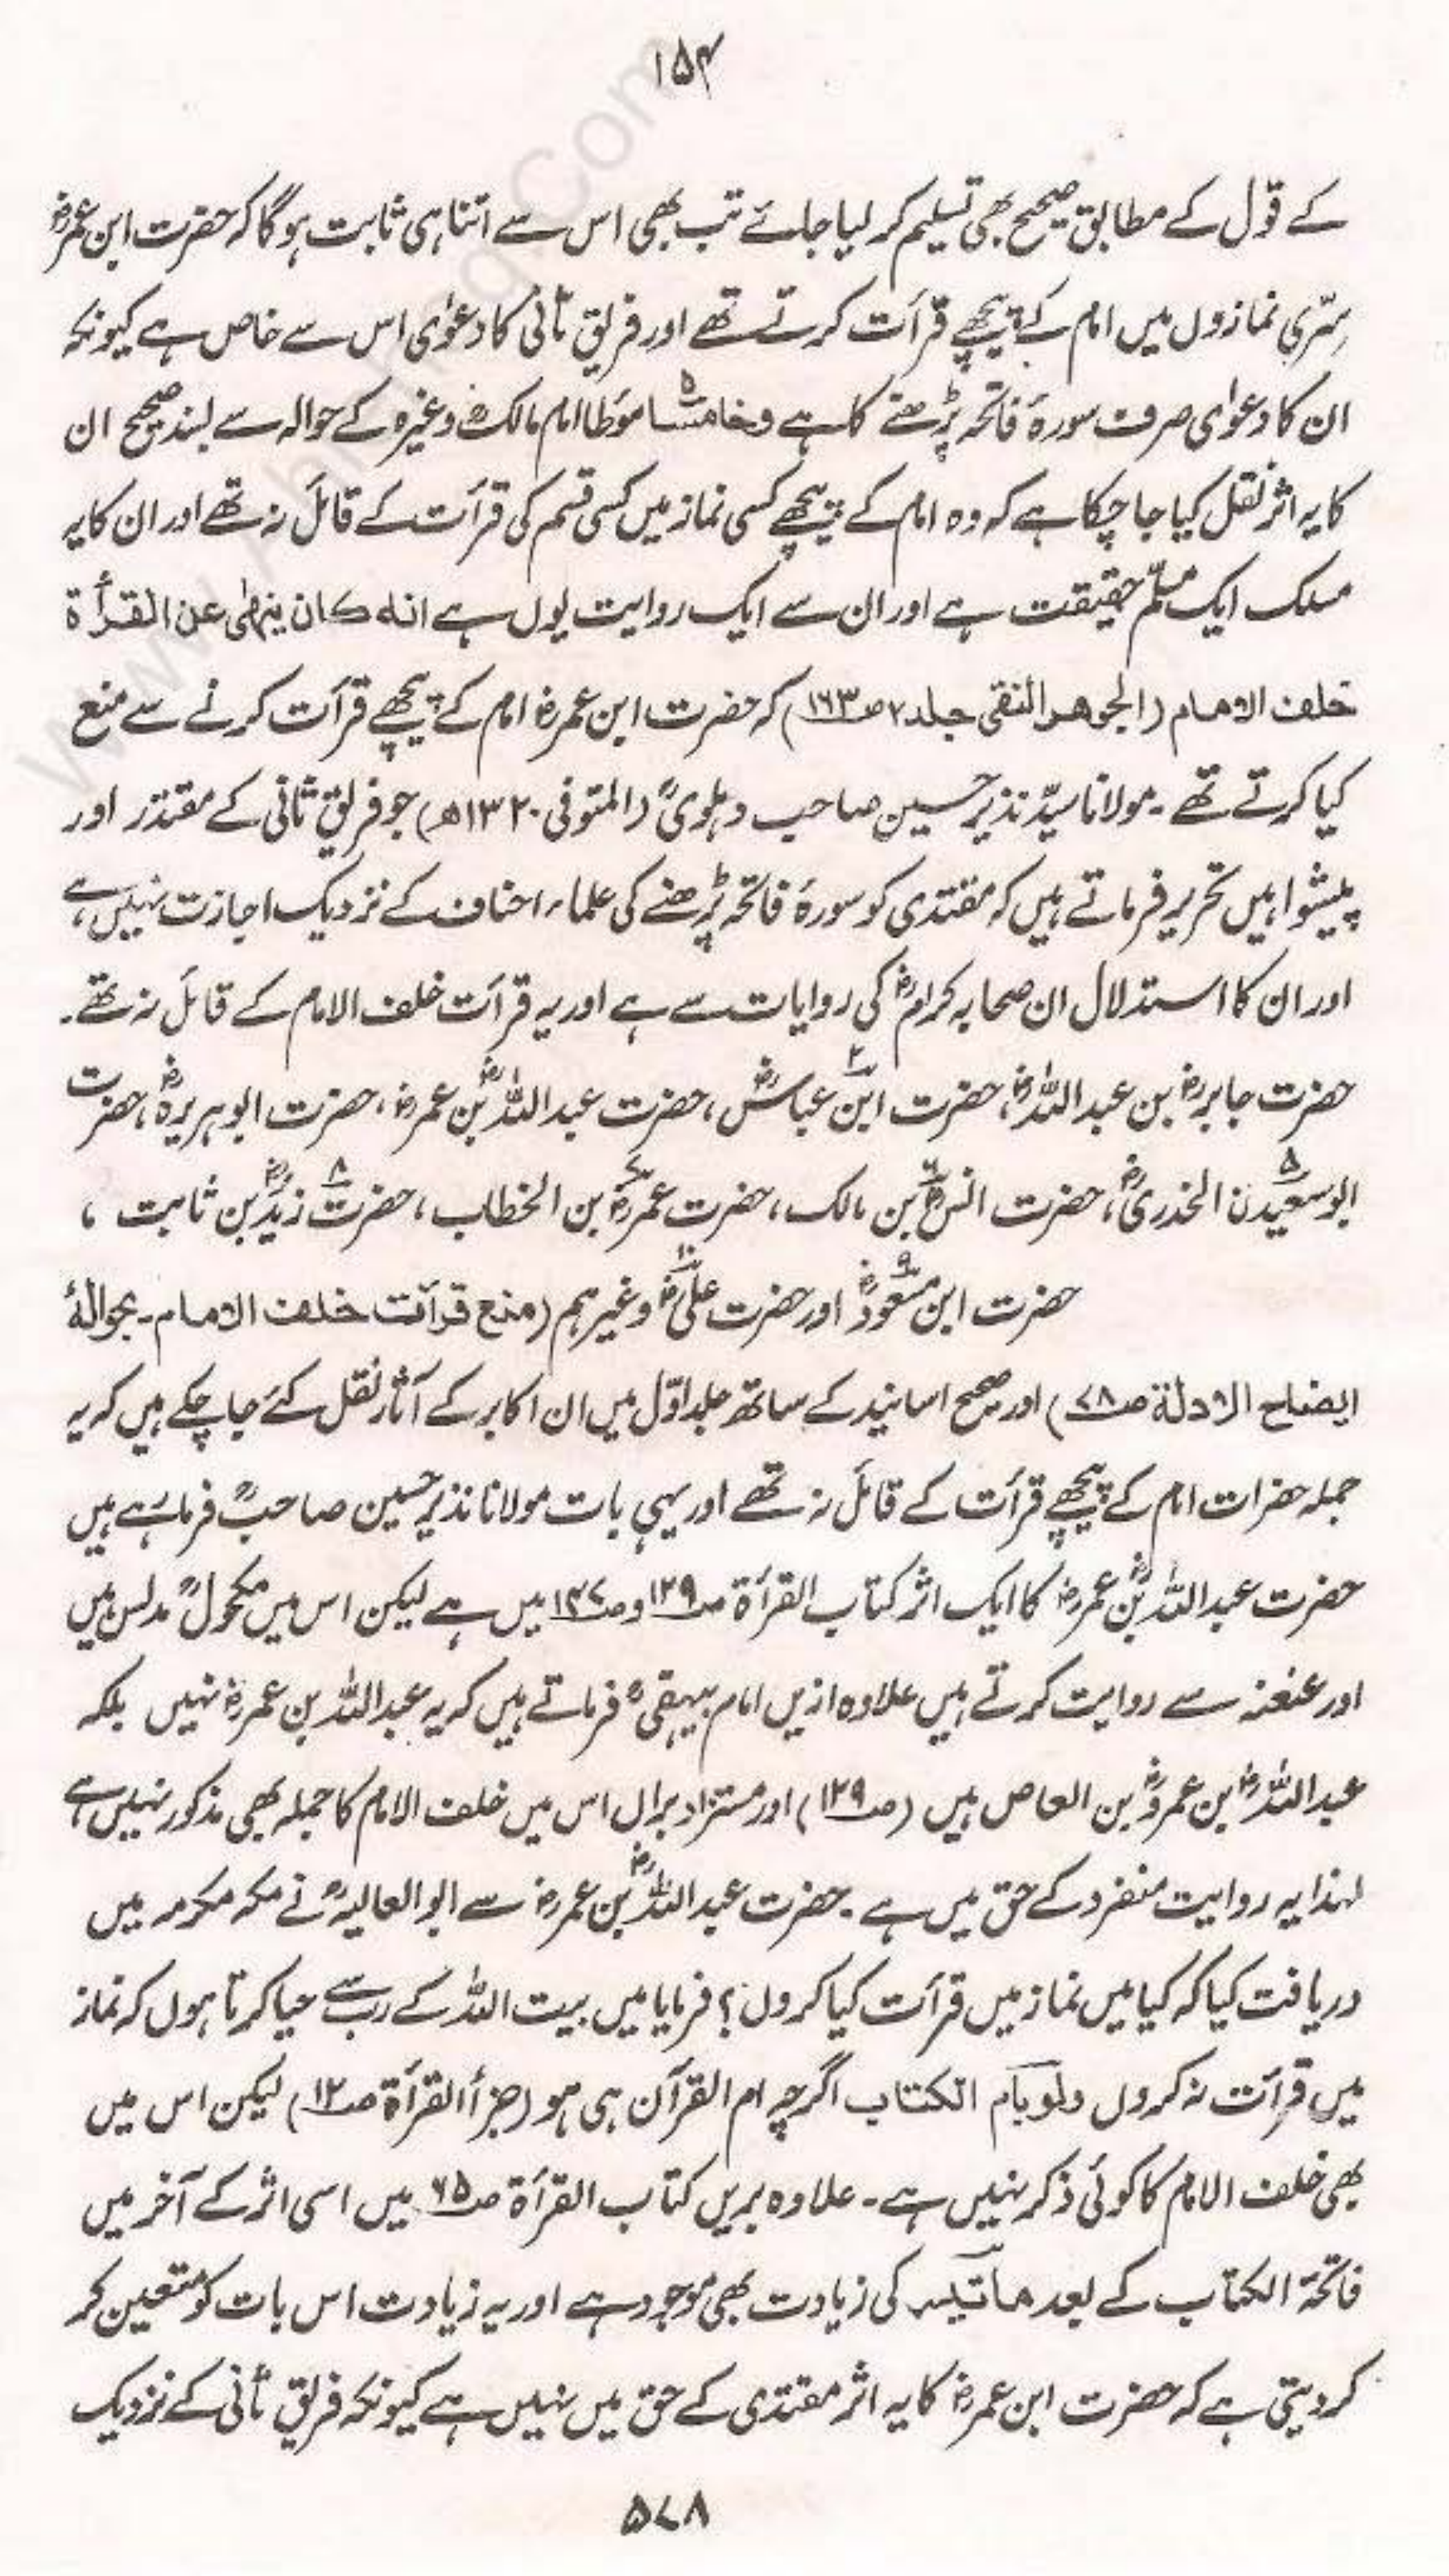 ۱۵۴
کے قول کے مطابق صحیح بھی تسلیم کر لیا جائے تب بھی اس سے اتنا ہی ثابت ہوگا کہ حضرت ابن عمرؓ
سِرّی نمازوں میں امام کے پیچھے قرآت کرتے تھے اور فریق ثانی کا دعوٰی اس سے خاص ہے کیونکہ
ان کا دعوٰی صرف سورۂ فاتحہ پڑھنے کا ہے وخامسًا ۵ مؤطا امام مالکؒ وغیرہ کے حوالہ سے بسند صحیح ان
کا یہ اثر نقل کیا جا چکا ہے کہ وہ امام کے پیچھے کسی نماز میں کسی قسم کی قرآت کے قائل نہ تھے اور ان کا یہ
مسلک ایک مسلّم حقیقت ہے اور ان سے ایک روایت یوں ہے انہ کان ینہٰی عن القرأۃ
خلف الامام (الجوھر النقی جلد ۲ ص۱۶۳) کہ حضرت ابن عمرؓ امام کے پیچھے قرآت کرنے سے منع
کیا کرتے تھے ۔ مولانا سیّد نذیر حسین صاحب دہلویؒ (المتوفی ۱۳۲۰ھ) جو فریق ثانی کے مقتدر اور
پیشوا ہیں تحریر فرماتے ہیں کہ مقتدی کو سورۂ فاتحہ پڑھنے کی علماء احناف کے نزدیک اجازت نہیں ہے،
اور ان کا استدلال ان صحابہ کرامؓ کی روایات سے ہے اور یہ قرآت خلف الامام کے قائل نہ تھے ۔
حضرت جابرؓ بن عبداللہؓ، حضرت ابنؓ عباسؓ، حضرت عبداللہؓ بن عمرؓ، حضرت ابوہریرہؓ، حضرت
ابوسعیدن الخدریؓ، حضرت انسؓ بن مالک، حضرت عمرؓ بن الخطاب، حضرت زیدؓ بن ثابت ،
حضرت ابن مسعودؓ اور حضرت علیؓ وغیرہم (منع قرآت خلف الامام ۔ بحوالۂ
ایضاح الادلۃ ص۷۸) اور صحیح اسانید کے ساتھ جلد اوّل میں ان اکابر کے آثار نقل کئے جا چکے ہیں کہ یہ
جملہ حضرات امام کے پیچھے قرآت کے قائل نہ تھے اور یہی بات مولانا نذیر حسین صاحبؒ فرما رہے ہیں
حضرت عبداللہؓ بن عمرؓ کا ایک اثر کتاب القرأۃ ص۱۲۹ و ص۱۴۷ میں ہے لیکن اس میں مکحولؒ مدلس ہیں
اور عنعنہ سے روایت کرتے ہیں علاوہ ازیں امام بیہقیؒ فرماتے ہیں کہ یہ عبداللہ بن عمرؓ نہیں بلکہ
عبداللہؓ بن عمروؓ بن العاص ہیں (ص۱۲۹) اور مستزاد براں اس میں خلف الامام کا جملہ بھی مذکور نہیں ہے
لہذا یہ روایت منفرد کے حق میں ہے ۔ حضرت عبداللہؓ بن عمرؓ سے ابوالعالیہؒ نے مکہ مکرمہ میں
دریافت کیا کہ کیا میں نماز میں قرآت کیا کروں؟ فرمایا میں بیت اللہ کے رب سے حیا کرتا ہوں کہ نماز
میں قرآت نہ کروں ولو بام الکتاب اگرچہ ام القرآن ہی ہو (جزأ القرأۃ ص۱۲) لیکن اس میں
بھی خلف الامام کا کوئی ذکر نہیں ہے ۔ علاوہ بریں کتاب القرأۃ ص۶۵ میں اسی اثر کے آخر میں
فاتحۃ الکتاب کے بعد ماتیسر کی زیادت بھی موجود ہے اور یہ زیادت اس بات کو متعین کر
کر دیتی ہے کہ حضرت ابن عمرؓ کا یہ اثر مقتدی کے حق میں نہیں ہے کیونکہ فریق ثانی کے نزدیک
۵۷۸